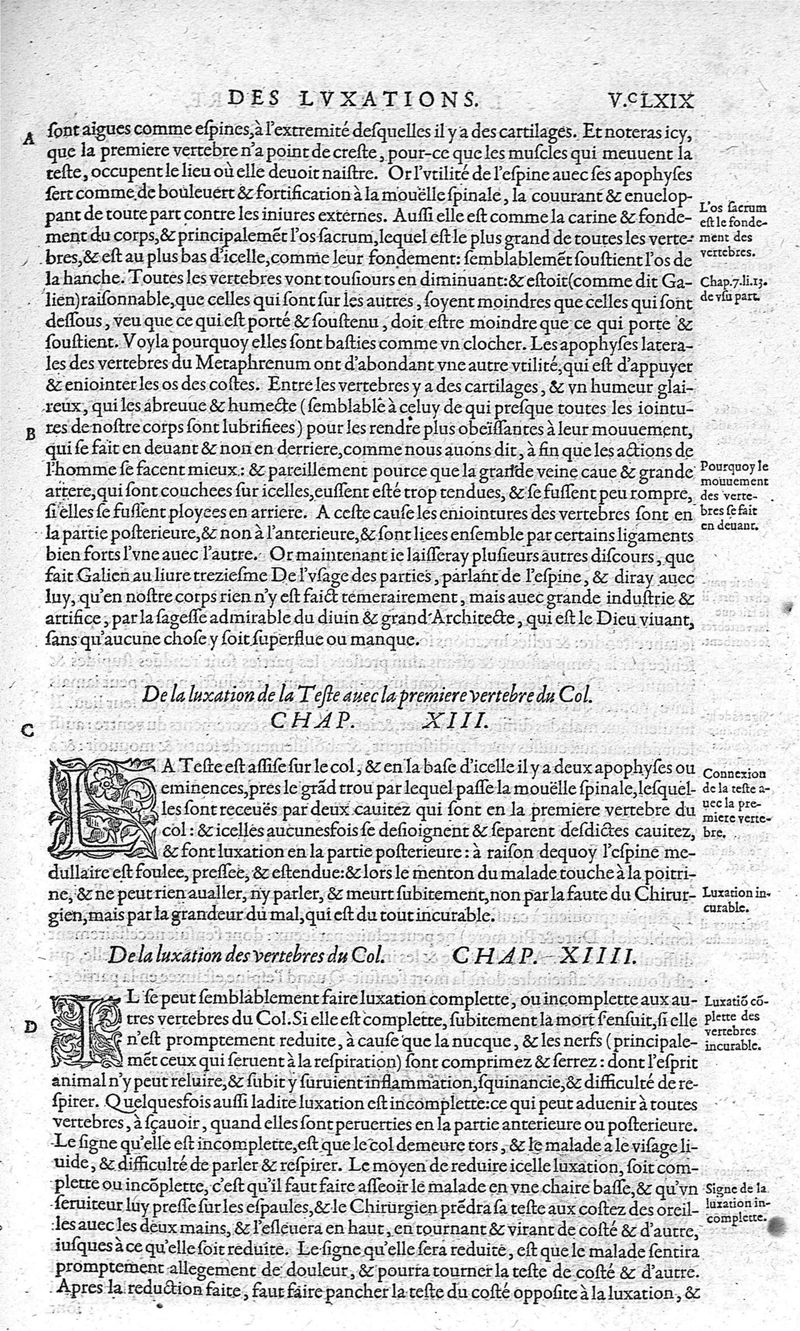 DES LVXATIONS. V.ᶜLXIX
A
ſont aigues comme eſpines, à l'extremité deſquelles il y a des cartilages. Et noteras icy,
que la premiere vertebre n'a point de creſte, pour-ce que les muſcles qui meuuent la
teſte, occupent le lieu où elle deuoit naiſtre. Or l'vtilité de l'eſpine auec ſes apophyſes
ſert comme de bouleuert & fortification à la mouëlle ſpinale, la couurant & enuelop-
pant de toute part contre les iniures externes. Auſſi elle eſt comme la carine & fonde-
ment du corps, & principalemẽt l'os ſacrum, lequel eſt le plus grand de toutes les verte-
bres, & eſt au plus bas d'icelle, comme leur fondement: ſemblablemẽt ſouſtient l'os de
la hanche. Toutes les vertebres vont touſiours en diminuant: & eſtoit (comme dit Ga-
lien) raiſonnable, que celles qui ſont ſur les autres, ſoyent moindres que celles qui ſont
deſſous, veu que ce qui eſt porté & ſouſtenu, doit eſtre moindre que ce qui porte &
ſouſtient. Voyla pourquoy elles ſont baſties comme vn clocher. Les apophyſes latera-
les des vertebres du Metaphrenum ont d'abondant vne autre vtilité, qui eſt d'appuyer
& enioin­ter les os des coſtes. Entre les vertebres y a des cartilages, & vn humeur glai-
reux, qui les abreuue & humecte (ſemblable à celuy de qui preſque toutes les iointu-
res de noſtre corps ſont lubrifiees) pour les rendre plus obeïſſantes à leur mouuement,
qui ſe fait en deuant & non en derriere, comme nous auons dit, à fin que les actions de
l'homme ſe facent mieux: & pareillement pource que la grande veine caue & grande
artere, qui ſont couchees ſur icelles, euſſent eſté trop tendues, & ſe fuſſent peu rompre,
ſi elles ſe fuſſent ployees en arriere. A ceſte cauſe les eniointures des vertebres ſont en
la partie poſterieure, & non à l'anterieure, & ſont liees enſemble par certains ligaments
bien forts l'vne auec l'autre. Or maintenant ie laiſſeray pluſieurs autres diſcours, que
fait Galien au liure trezieſme De l'vſage des parties, parlant de l'eſpine, & diray auec
luy, qu'en noſtre corps rien n'y eſt faict temerairement, mais auec grande induſtrie &
artifice, par la ſageſſe admirable du diuin & grand Architecte, qui eſt le Dieu viuant,
ſans qu'aucune choſe y ſoit ſuperflue ou manque.
L'os ſacrum
eſt le fonde-
ment des
vertebres.
Chap. 7. li. 13.
de vſu part.
B
Pourquoy le
mouuement
des verte-
bres ſe fait
en deuant.
De la luxation de la Teſte auec la premiere vertebre du Col.
CHAP. XIII.
C
LA Teſte eſt aſſiſe ſur le col, & en la baſe d'icelle il y a deux apophyſes ou
eminences, pres le grãd trou par lequel paſſe la mouëlle ſpinale, leſquel-
les ſont receuës par deux cauitez qui ſont en la premiere vertebre du
col: & icelles aucunesfois ſe deſioignent & ſeparent deſdictes cauitez,
& font luxation en la partie poſterieure: à raiſon dequoy l'eſpine me-
dullaire eſt foulee, preſſee, & eſtendue: & lors le menton du malade touche à la poitri-
ne, & ne peut rien aualler, ny parler, & meurt ſubitement, non par la faute du Chirur-
gien, mais par la grandeur du mal, qui eſt du tout incurable.
Connexion
de la teſte a-
uec la pre-
miere verte-
bre.
Luxation in-
curable.
De la luxation des vertebres du Col. CHAP. XIIII.
D
IL ſe peut ſemblablement faire luxation complette, ou incomplette aux au-
tres vertebres du Col. Si elle eſt complette, ſubitement la mort s'enſuit, ſi elle
n'eſt promptement reduite, à cauſe que la nucque, & les nerfs (principale-
mẽt ceux qui ſeruent à la reſpiration) ſont comprimez & ſerrez: dont l'eſprit
animal n'y peut reluire, & ſubit y ſuruient inflammation, ſquinancie, & difficulté de re-
ſpirer. Quelquesfois auſſi ladite luxation eſt incomplette: ce qui peut aduenir à toutes
vertebres, à ſçauoir, quand elles ſont peruerties en la partie anterieure ou poſterieure.
Le ſigne qu'elle eſt incomplette, eſt que le col demeure tors, & le malade a le viſage li-
uide, & difficulté de parler & reſpirer. Le moyen de reduire icelle luxation, ſoit com-
plette ou incõplette, c'eſt qu'il faut faire aſſeoir le malade en vne chaire baſſe, & qu'vn
ſeruiteur luy preſſe ſur les eſpaules, & le Chirurgien prẽdra ſa teſte aux coſtez des oreil-
les auec les deux mains, & l'eſleuera en haut, en tournant & virant de coſté & d'autre,
iuſques à ce qu'elle ſoit reduite. Le ſigne qu'elle ſera reduite, eſt que le malade ſentira
promptement allegement de douleur, & pourra tourner la teſte de coſté & d'autre.
Apres la reduction faite, faut faire pancher la teſte du coſté oppoſite à la luxation, &
Luxatiõ cõ-
plette des
vertebres
incurable.
Signe de la
luxation in-
complette.